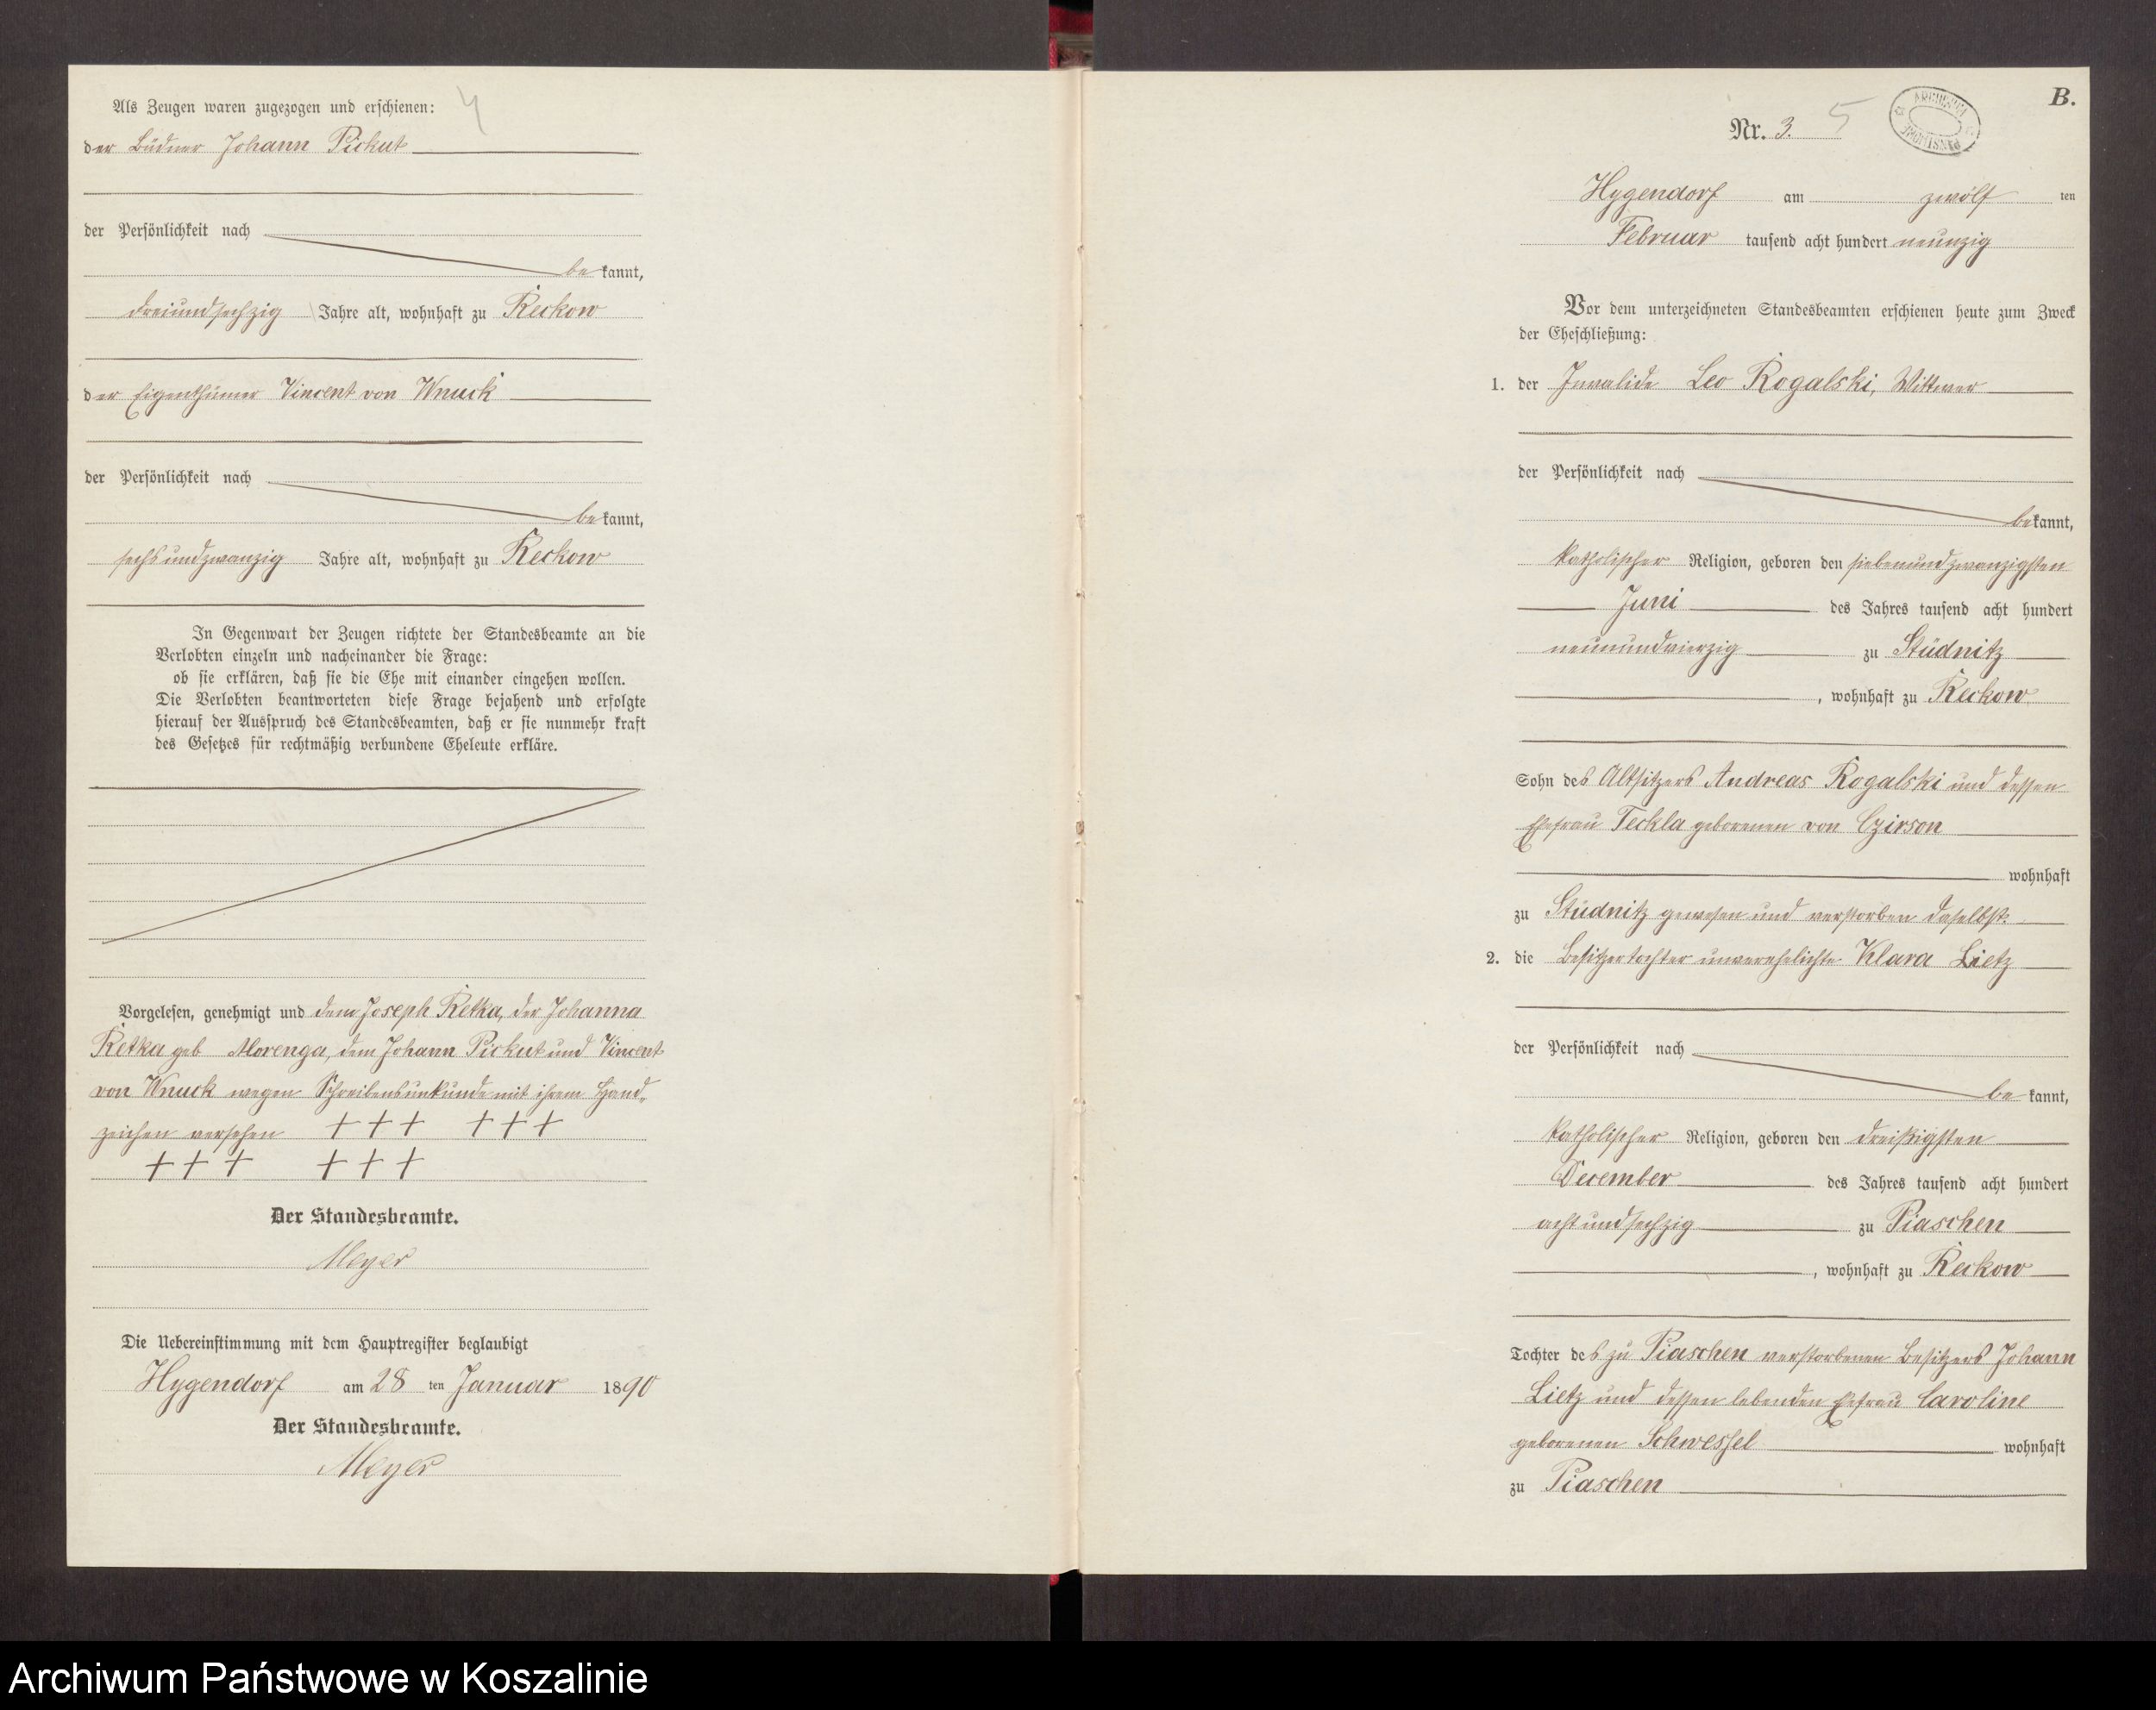 Als Zeugen waren zugezogen und erschienen: 4
der Büdner Johann Pickut
der Persönlichkeit nach
bekannt,
dreiundsechzig Jahre alt, wohnhaft zu Reckow
der Eigenthümer Vincent von Wnuck
der Persönlichkeit nach
bekannt,
sechsundzwanzig Jahre alt, wohnhaft zu Reckow
In Gegenwart der Zeugen richtete der Standesbeamte an die
Verlobten einzeln und nacheinander die Frage:
ob sie erklären, daß sie die Ehe mit einander eingehen wollen.
Die Verlobten beantworteten diese Frage bejahend und erfolgte
hierauf der Ausspruch des Standesbeamten, daß er sie nunmehr kraft
des Gesetzes für rechtmäßig verbundene Eheleute erkläre.
Vorgelesen, genehmigt und dem Joseph Retka, der Johanna
Retka geb Morenga, dem Johann Pickut und Vincent
von Wnuck wegen Schreibensunkunde mit ihrem Hand-
zeichen versehen +++ +++
+++ +++
Der Standesbeamte.
Meyer
Die Uebereinstimmung mit dem Hauptregister beglaubigt
Hygendorf am 28 ten Januar 1890
Der Standesbeamte.
Meyer
B.
Nr. 3. 5
Hygendorf am zwölf ten
Februar tausend acht hundert neunzig
Vor dem unterzeichneten Standesbeamten erschienen heute zum Zweck
der Eheschließung:
1. der Invalide Leo Rogalski, Wittwer
der Persönlichkeit nach
bekannt,
katholischer Religion, geboren den siebenundzwanzigsten
Juni des Jahres tausend acht hundert
neunundvierzig zu Stüdnitz
, wohnhaft zu Reckow
Sohn des Altsitzers Andreas Rogalski und dessen
Ehefrau Teckla geborenen von Czirson
wohnhaft
zu Stüdnitz gewesen und verstorben daselbst.
2. die Besitzertochter unverehelichte Klara Lietz
der Persönlichkeit nach
bekannt,
katholischer Religion, geboren den dreißigsten
December des Jahres tausend acht hundert
achtundsechzig zu Piaschen
, wohnhaft zu Reckow
Tochter des zu Piaschen verstorbenen Besitzers Johann
Lietz und dessen lebenden Ehefrau Caroline
geborenen Schwessel wohnhaft
zu Piaschen
Archiwum Państwowe w Koszalinie